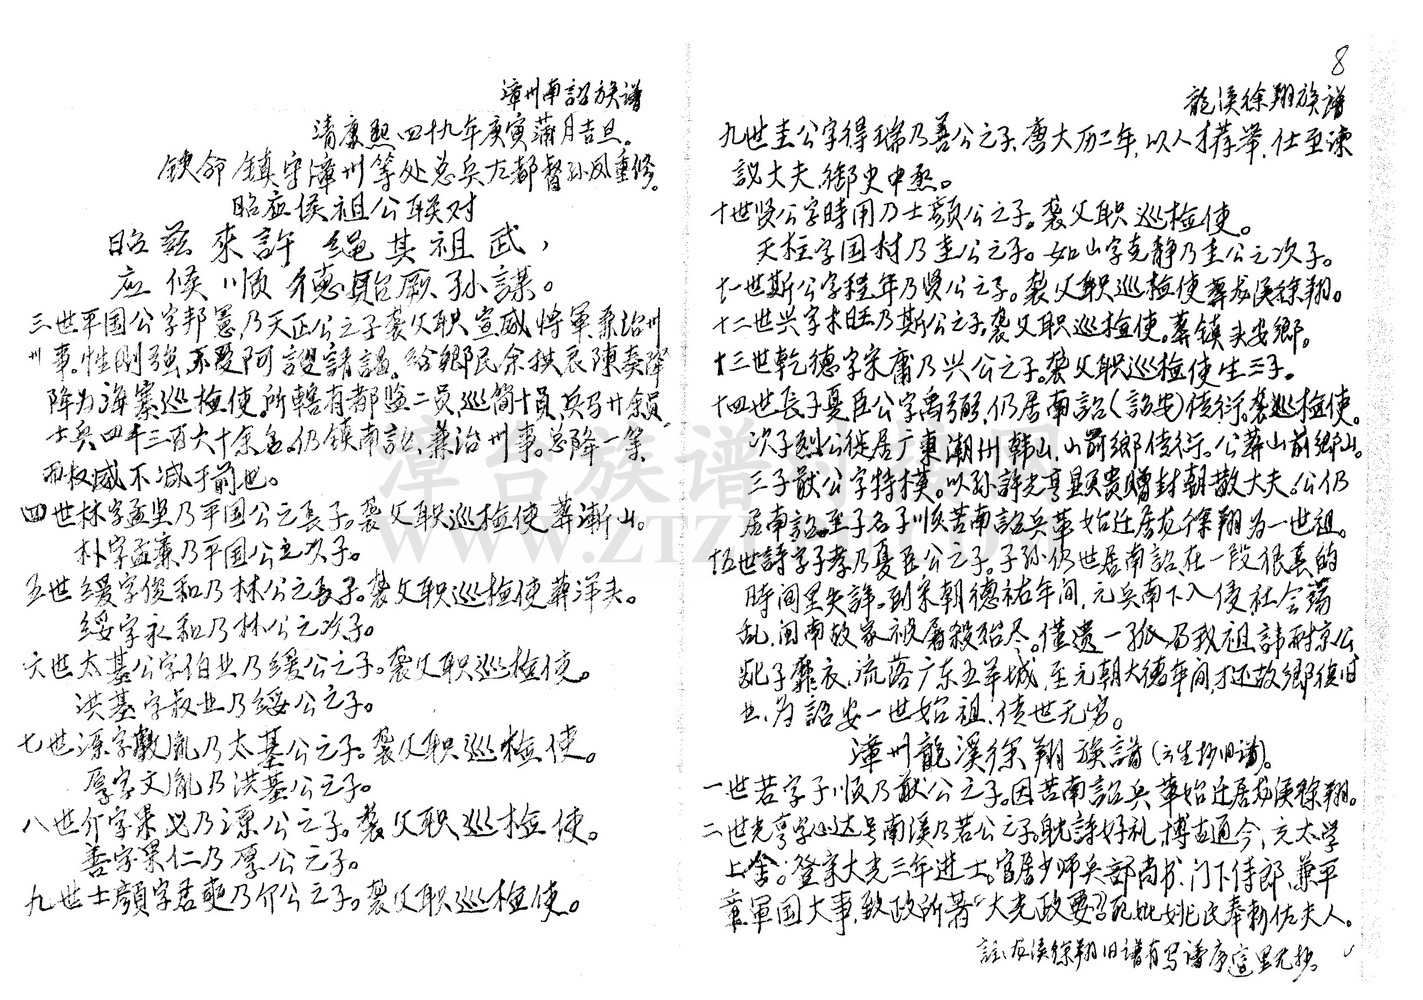 漳州南詔族譜
清康熙四十九年庚寅蒲月吉旦。
鎮守漳州等处总兵左都督孙凤重修。
昭应侯祖公联对
昭兹來許 绳其祖武，
应候順德貽厥孙謀。
三世平国公字邦憲，乃天正公之子袭父职宣威將軍兼治州
州事。性刚強不受阿諛請謁。給鄉民余拱辰陳奏降
降为海寨巡檢使。所轄有都监二员，巡简十員，兵马廿余員，
士兵四千三百六十余名。仍鎮南詔，兼治州事。总降一等，
而权威不减于前也。
四世林字孟坚乃平国公之長子。袭父职巡檢使葬漸山。
朴字孟廉乃平国公之次子。
五世缓字俊和乃林公之長子。袭父职巡檢使葬洋头。
綏字永和乃林公之次子。
六世太基公字伯业乃缓公之子。袭父职巡檢使。
洪基字叔业乃綏公之子。
七世源字敷胤乃太基公之子。袭父职巡檢使。
厚字文胤乃洪基公之子。
八世介字果必乃源公之子。袭父职巡檢使。
善字果仁乃厚公之子。
九世士顏字君奭乃介公之子。袭父职巡檢使。
8
龍溪徐翔族譜
九世圭公字得瑞乃善公之子，唐大历二年，以人才荐举，仕至諫
議大夫，御史中丞。
十世贤公字時用乃士顏公之子。袭父职巡檢使。
天柱字国材乃圭公之子。如山字克静乃圭公之次子。
十一世斯公字程年乃贤公之子。袭父职巡檢使葬龙溪徐翔。
十二世兴字末旺乃斯公之子。袭父职巡檢使。葬鎮头安鄉。
十三世乾德字宋庸乃兴公之子。袭父职巡檢使生三子。
十四世長子夏臣公字禹弼，仍居南詔（詔安）传衍。袭巡檢使。
次子烈公徙居广東潮州韩山，山前鄉传衍。公葬山前鄉山。
三子猷公字特模。以孙許光亨显贵贈封朝散大夫。公仍
居南詔。至子名子順苦南詔兵革始迁居龙徐翔为一世祖。
十五世詩字子孝乃夏臣公之子。子孙仍世居南詔。在一段很長的
時间里失詳。到宋朝德祐年间，元兵南下入侵社会蕩
乱，闽南故家被屠殺殆尽。僅遗一孤乃我祖諱耐京公
龀子麑衣，流落广东五羊城，至元朝大德年间，才还故鄉復旧
业，为詔安一世始祖，传世无穷。
漳州龍溪徐翔族譜（云生抄旧谱）。
一世若字子順乃猷公之子。因苦南詔兵革始迁居龙溪徐翔。
二世光亨字心达号南溪乃若公之子。耽詩好礼，博古通今，立太学
上舍。登宋大光三年进士。官居少师兵部尚书、门下侍郎、兼平
章軍国大事，致政所著“大光政要”配妣姚氏奉勅佐夫人。
註：龙溪徐翔旧谱有写谱序這里无抄。
漳台族谱对接网